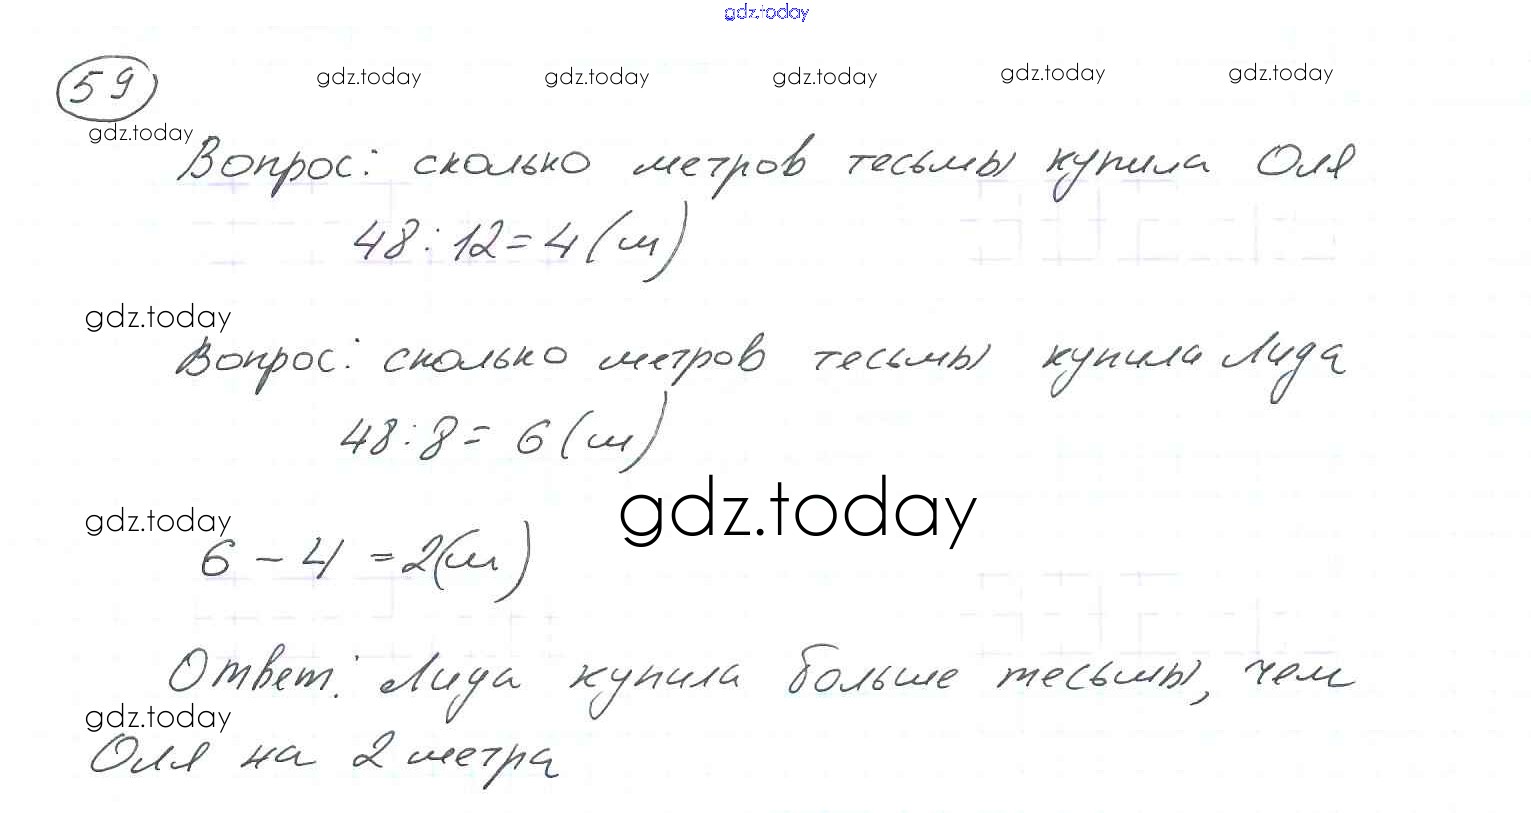 gdz.today
59
gdz.today gdz.today gdz.today gdz.today gdz.today
gdz.today
Вопрос: сколько метров тесьмы купила Оля
48 : 12 = 4 (м)
gdz.today
Вопрос: сколько метров тесьмы купила Лида
48 : 8 = 6 (м)
gdz.today
gdz.today
6 - 4 = 2 (м)
Ответ: Лида купила больше тесьмы, чем
gdz.today
Оля на 2 метра